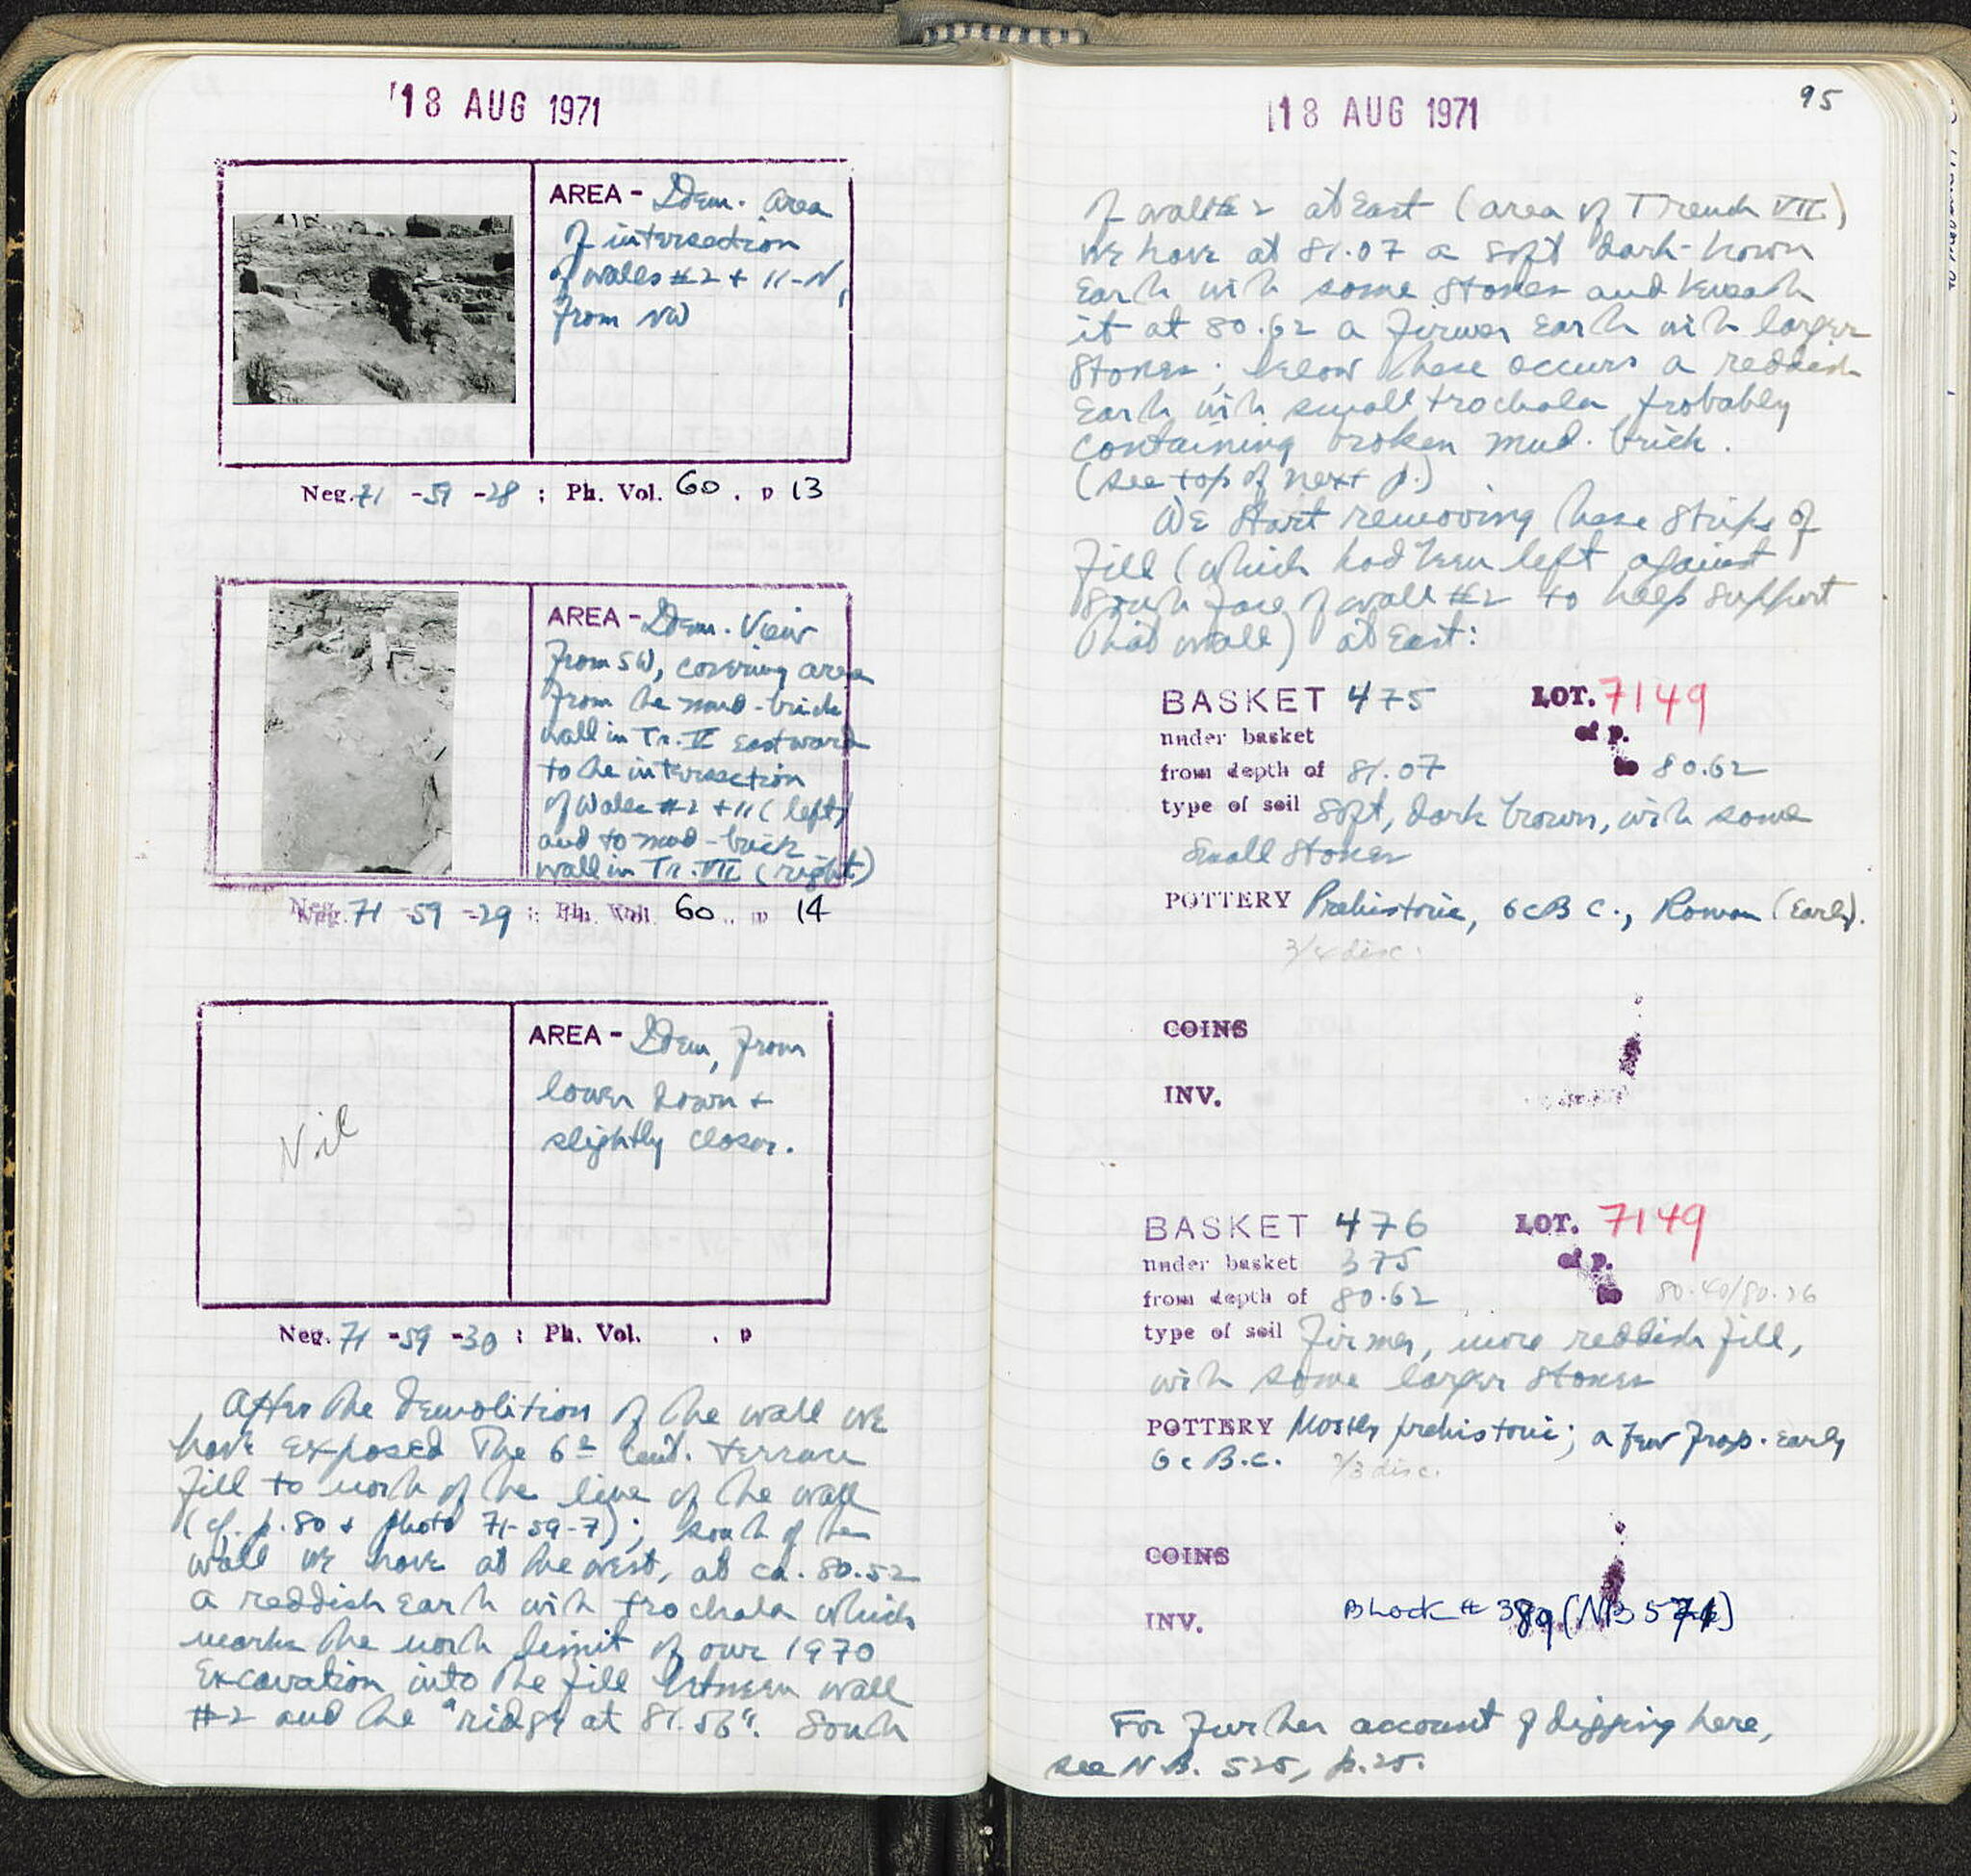 18 AUG 1971
AREA - Idem. Area
of intersection
of walls #2 + 11-N,
from NW
Neg. 71 -59 -28 ; Ph. Vol. 60 , p 13
AREA - Idem. View
from SW, covering area
from the mud-brick
wall in Tr. II eastward
to the intersection
of Walls #2 + 11 (left)
and to mud-brick
wall in Tr. VII (right)
Neg. 71 -59 -29 ; Ph. Vol. 60 , p 14
Nil
AREA - Idem, from
lower down +
slightly closer.
Neg. 71 -59 -30 ; Ph. Vol. , p
After the demolition of the wall we
have exposed the 6th Cent. terrace
fill to north of the line of the wall
(cf. p. 80 & photo 71-59-7); south of the
wall we have at the west, at ca. 80.52
a reddish earth with trochala which
marks the north limit of our 1970
excavation into the fill between wall
#2 and the "ridge at 81.56". South
18 AUG 1971
95
of wall #2 at East (area of Trench VII)
we have at 81.07 a soft dark-brown
earth with some stones and beneath
it at 80.62 a firmer earth with larger
stones; below these occurs a reddish
earth with small trochala probably
containing broken mud-brick.
(see top of next p.)
We start removing these strips of
fill (which had been left against
South face of wall #2 to help support
that wall) at East:
BASKET 475 LOT. 7149
under basket of p.
from depth of 81.07 to 80.62
type of soil soft, dark brown, with some
small stones
POTTERY Prehistoric, 6c B C., Roman (Early).
3/4 disc.
COINS
INV.
BASKET 476 LOT. 7149
under basket 375 of p.
from depth of 80.62 to 80.40/80.26
type of soil Firmer, more reddish fill,
with some larger stones
POTTERY Mostly prehistoric; a few frags. early
6c B.C. 2/3 disc.
COINS
INV. Block # 389 (NB 571)
For further account of digging here,
see N.B. 525, p. 25.